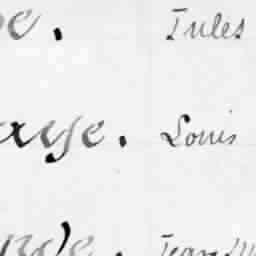 e. Jules
aye. Louis
nde. Jean M